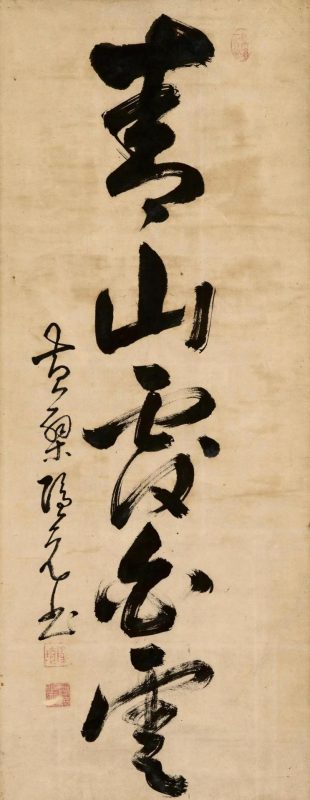 青山白雲
黄檗隱元書